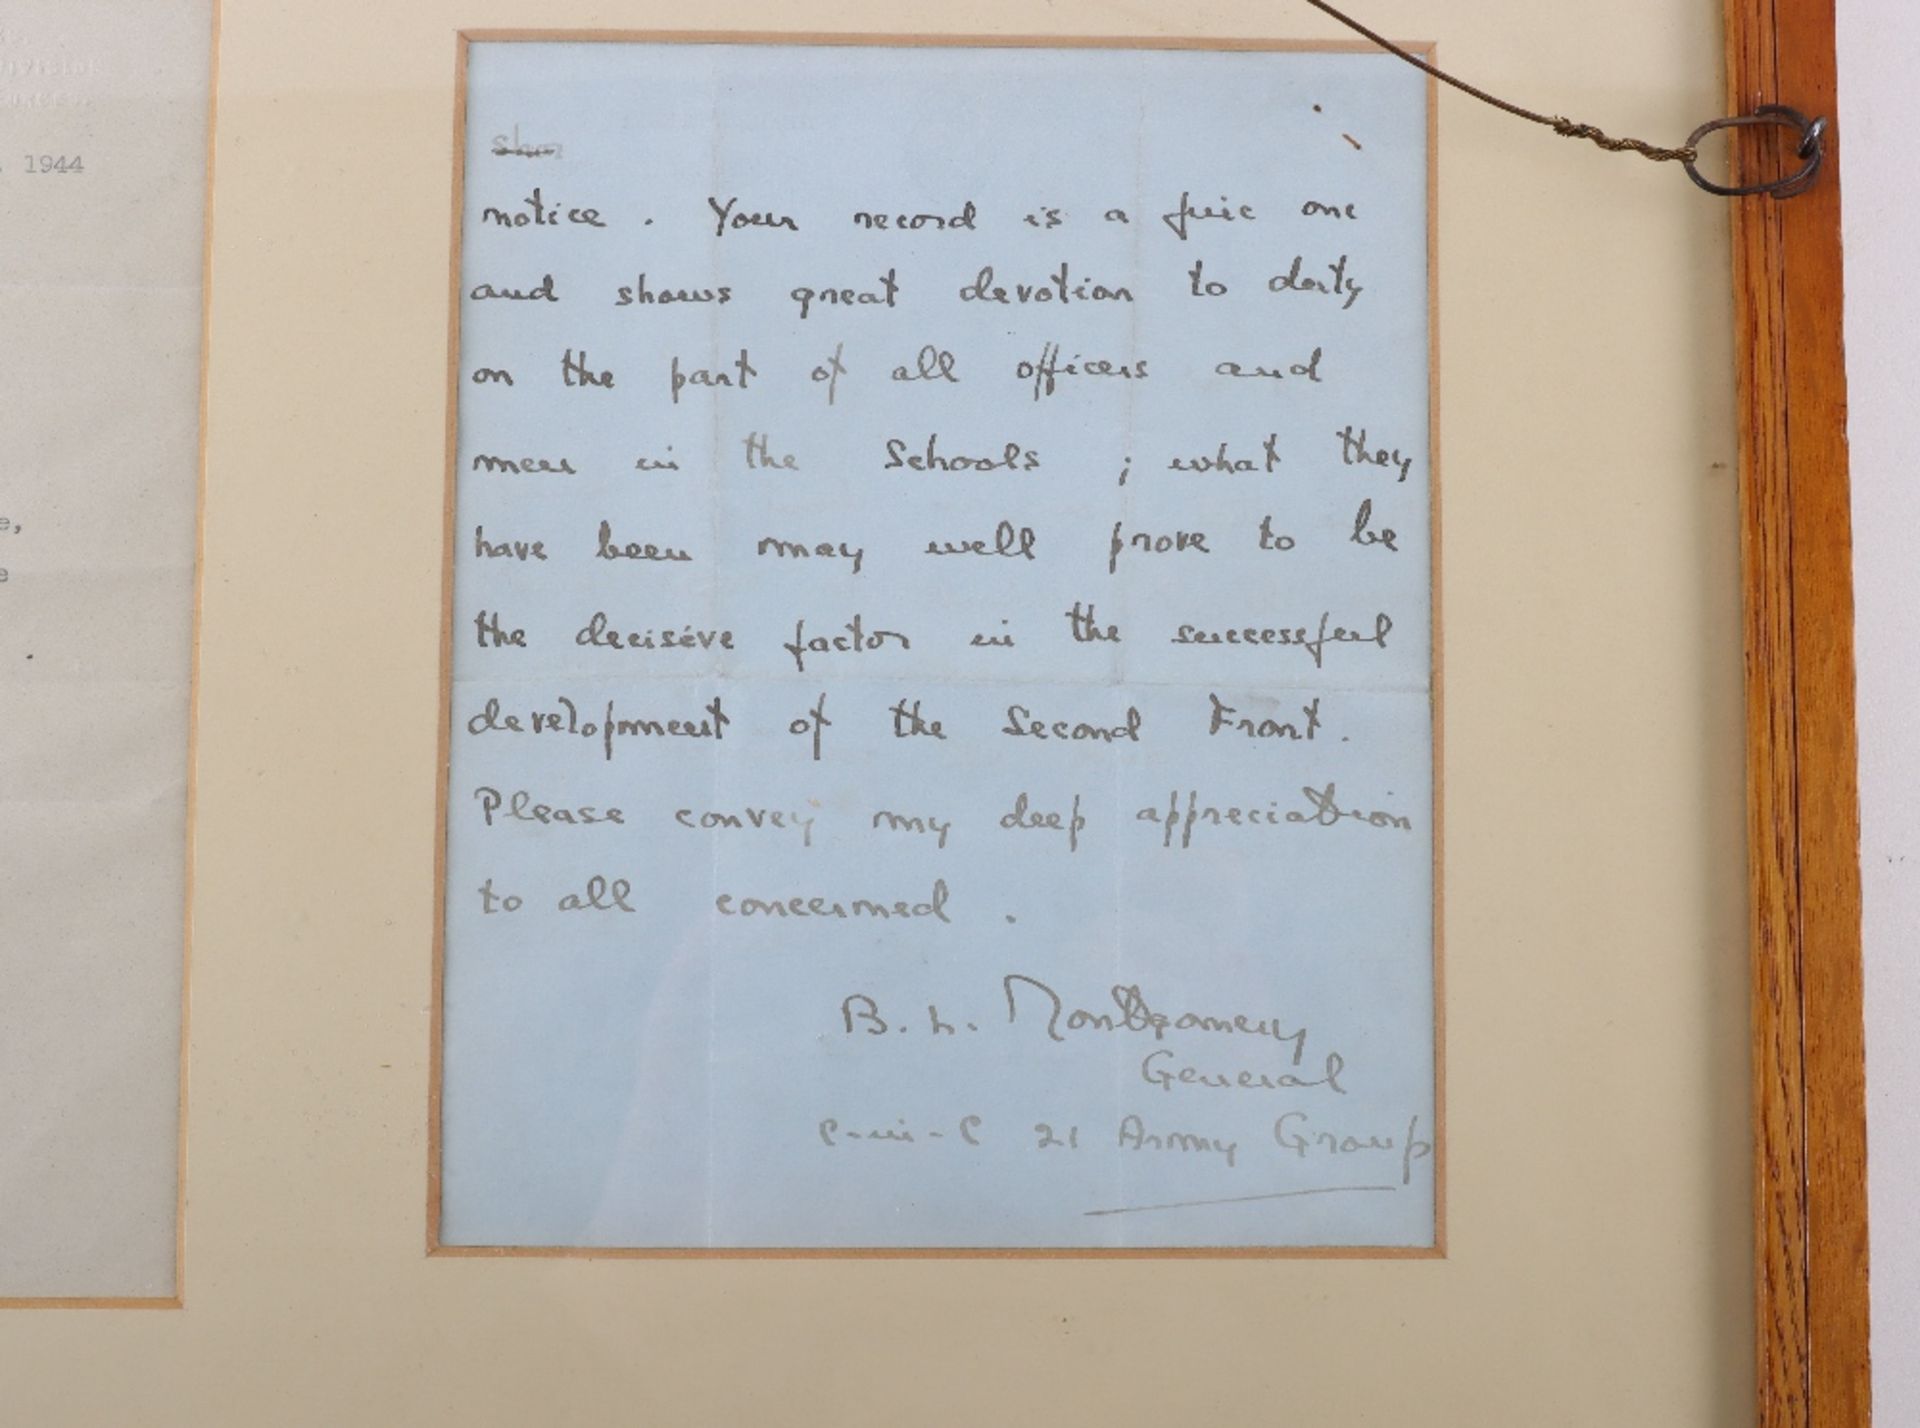 1944
notice. Your record is a fine one
and shows great devotion to duty
on the part of all officers and
men in the Schools ; what they
have been may well prove to be
the decisive factor in the successful
development of the Second Front.
Please convey my deep appreciation
to all concerned.
B. L. Montgomery
General
C-in-C 21 Army Group